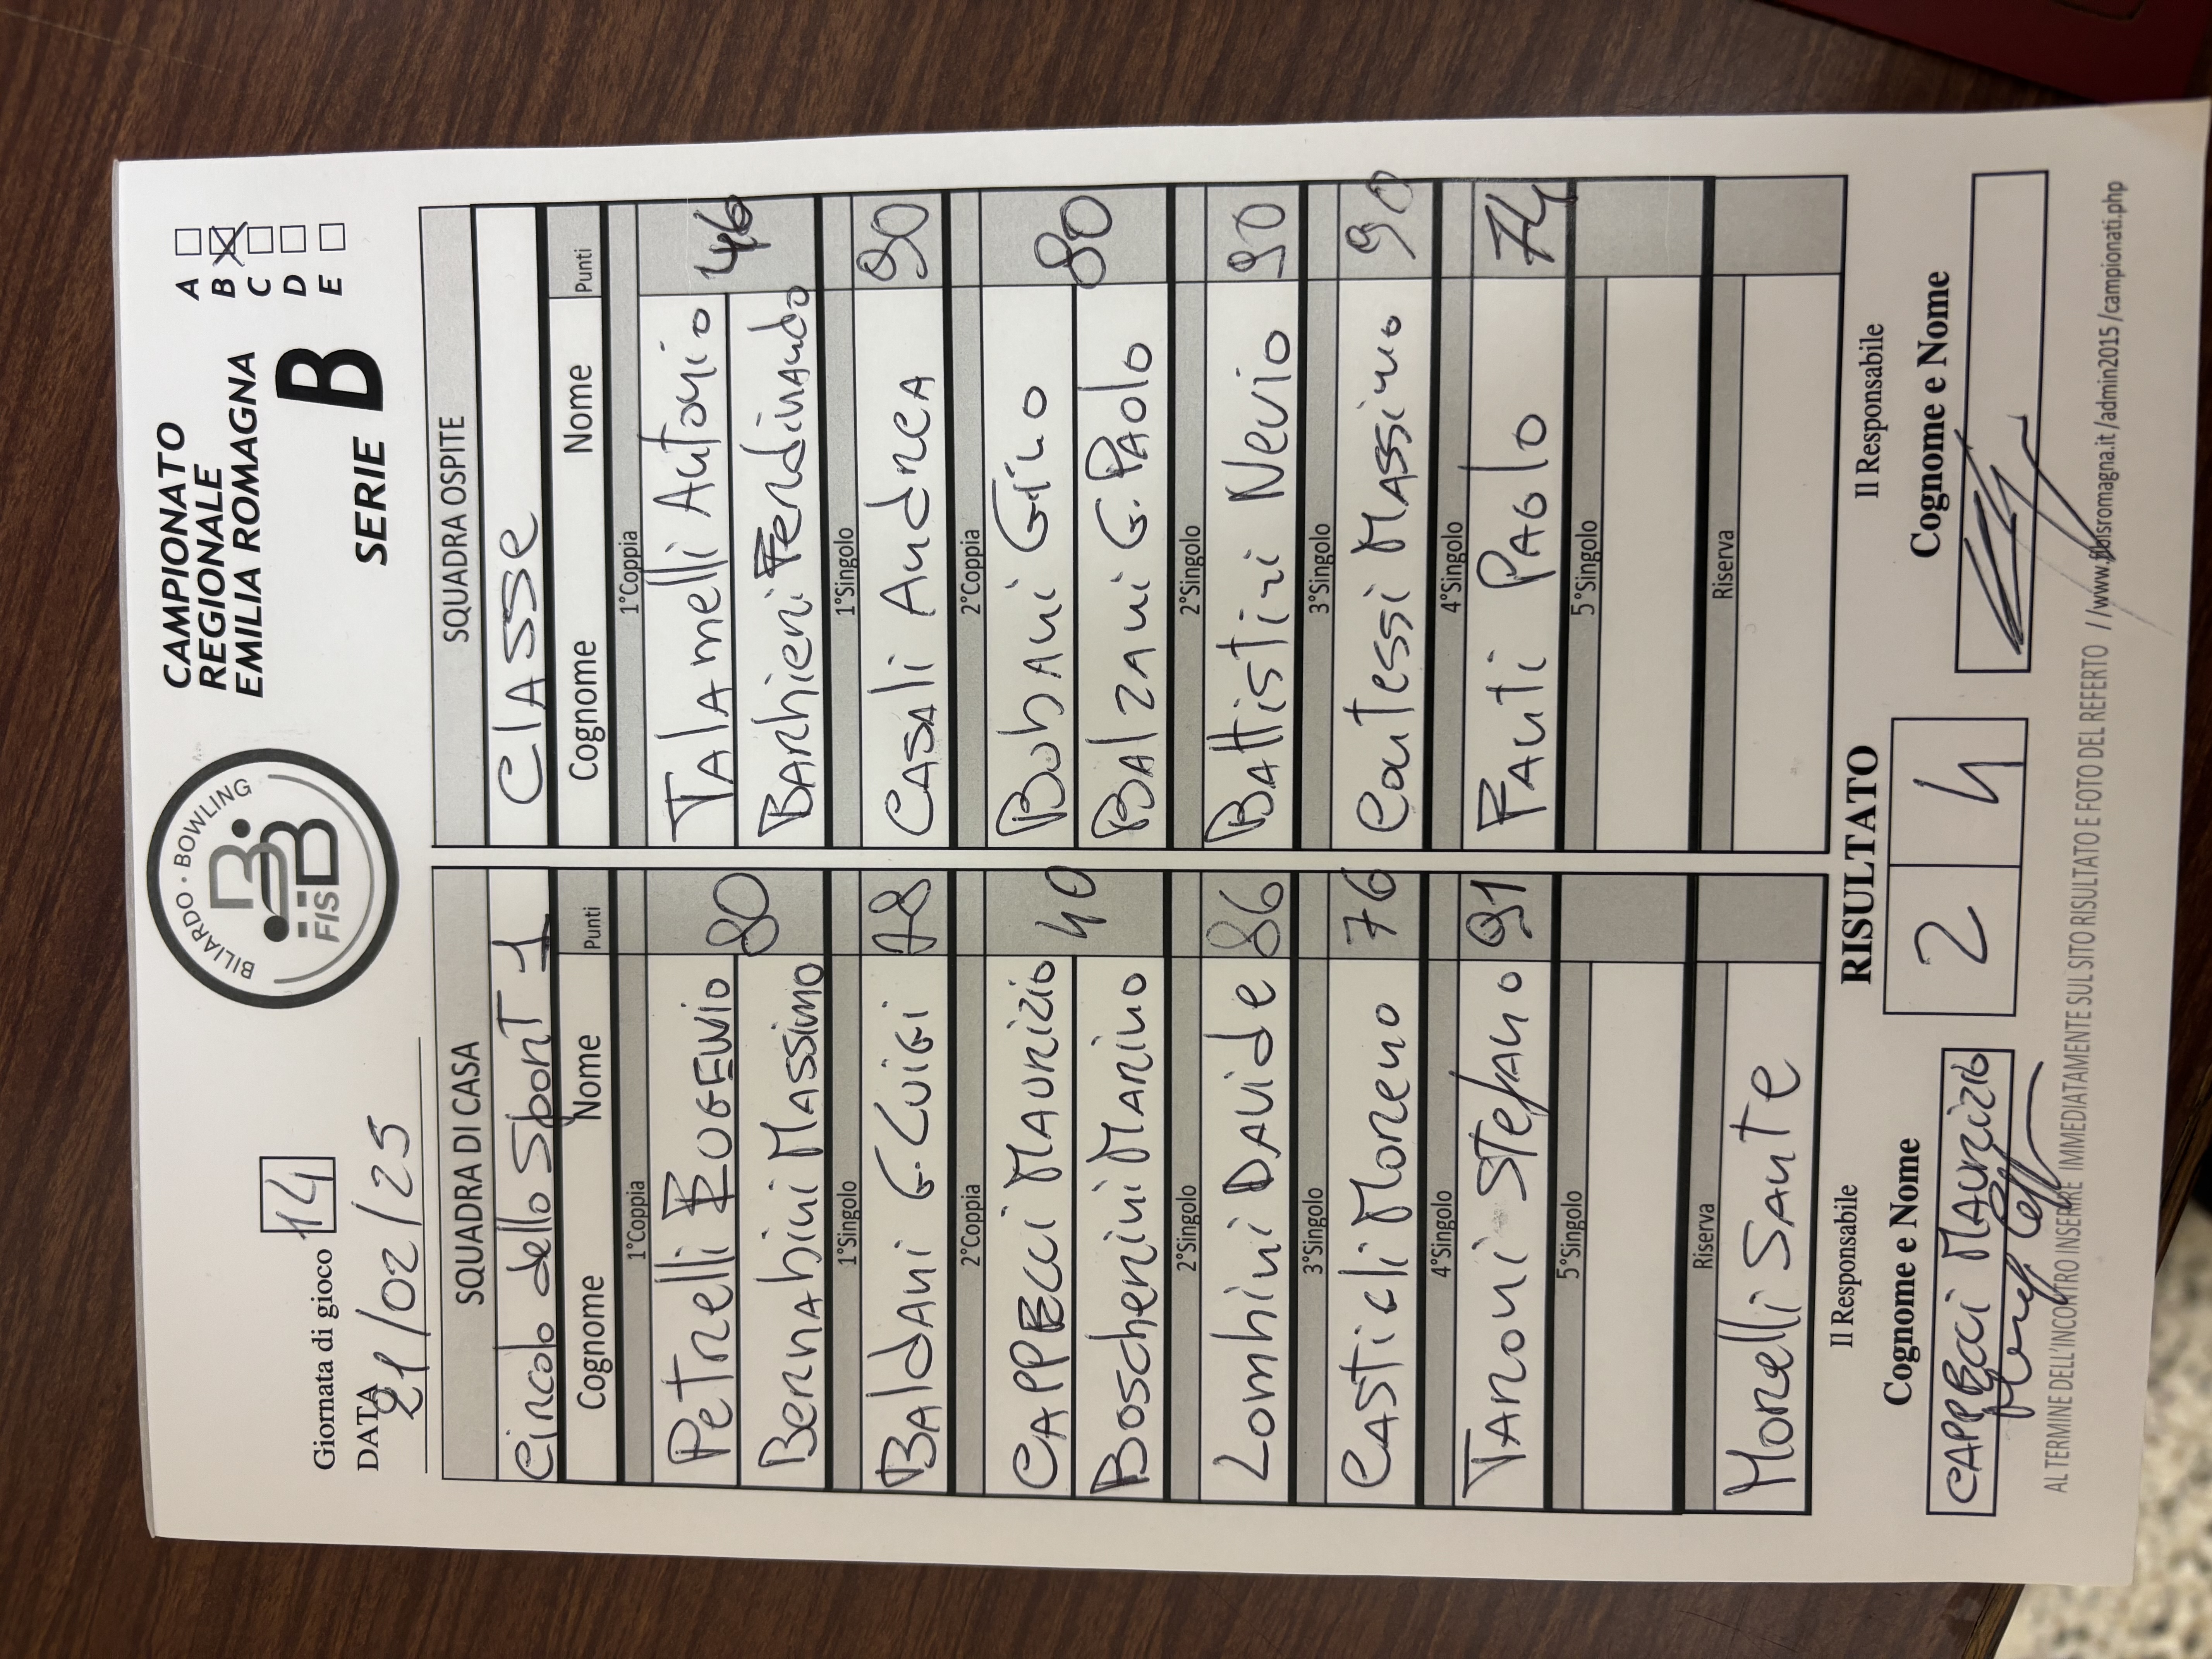 Giornata di gioco 14
DATA
21/02/25
BILIARDO · BOWLING
FISBB
CAMPIONATO
REGIONALE
EMILIA ROMAGNA
SERIE B
A
B
C
D
E
SQUADRA DI CASA
Circolo dello Sport 1
Cognome Nome Punti
1°Coppia
Petrelli EUGENIO 80
Bernabini Massimo
1°Singolo
Baldani G.Luigi 78
2°Coppia
CAPPECCI Maurizio 40
Boscherini Marino
2°Singolo
Lombini Davide 86
3°Singolo
Casticli Moreno 76
4°Singolo
Taroni Stefano 91
5°Singolo
Riserva
Morelli Sante
SQUADRA OSPITE
Classe
Cognome Nome Punti
1°Coppia
Talamelli Antonio 46
Barbieri Ferdinando
1°Singolo
Casali Andrea 90
2°Coppia
Bubani Gino 80
Balzani G.Paolo
2°Singolo
Battistini Nevio 90
3°Singolo
Contessi Massimo 90
4°Singolo
Fanti Paolo 74
5°Singolo
Riserva
Il Responsabile
Cognome e Nome
CAPPECCI Maurizio
RISULTATO
2 4
Il Responsabile
Cognome e Nome
AL TERMINE DELL'INCONTRO INSERIRE IMMEDIATAMENTE SUL SITO RISULTATO E FOTO DEL REFERTO //www.fibisromagna.it/admin2015/campionati.php